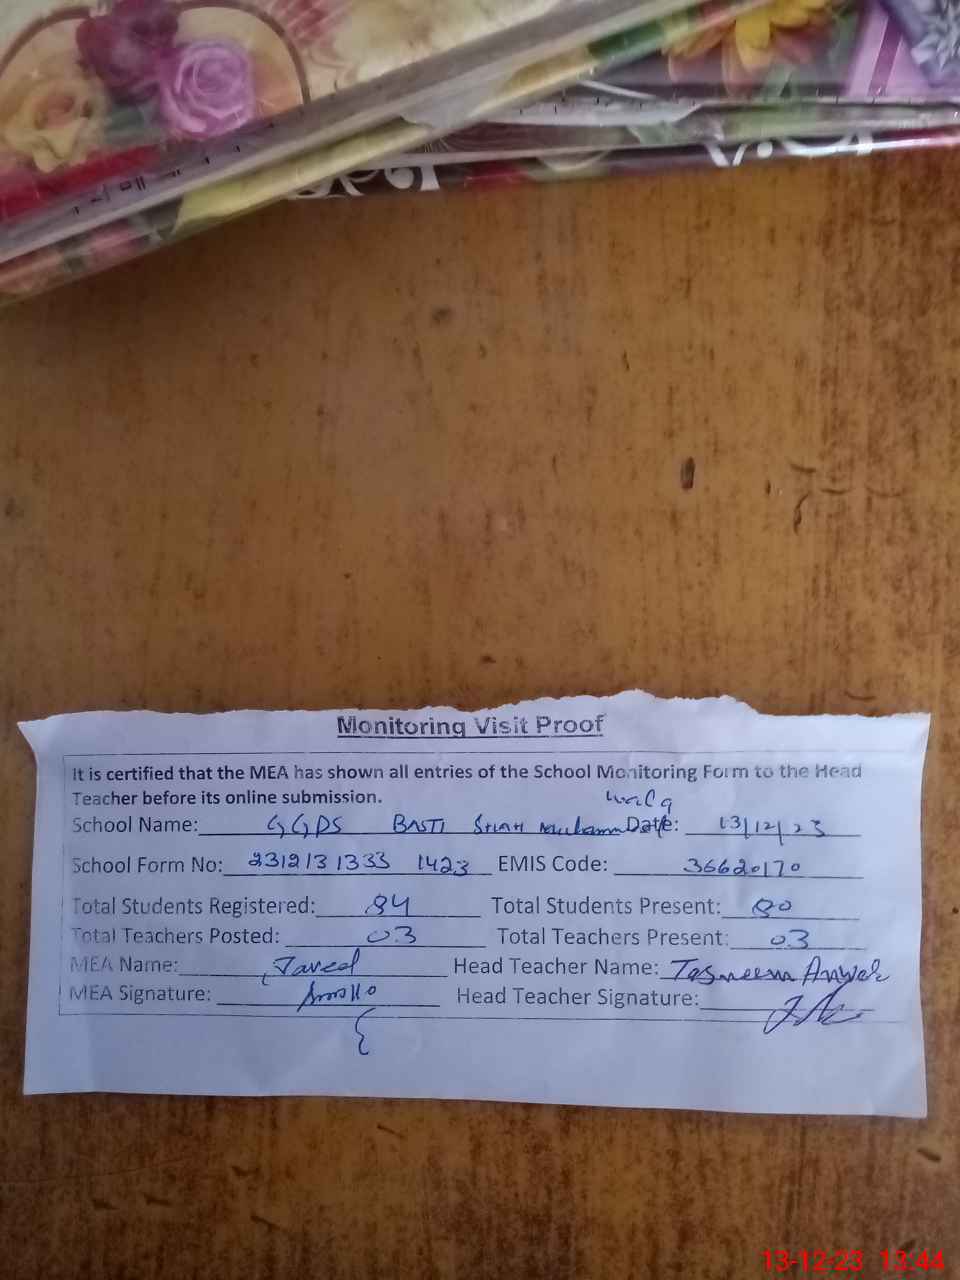 Monitoring Visit Proof
It is certified that the MEA has shown all entries of the School Monitoring Form to the Head
Teacher before its online submission.
School Name: GGPS BASTI SHAH Muhamm wala Date: 13/12/23
School Form No: 231213 1333 1423 EMIS Code: 36620170
Total Students Registered: 84 Total Students Present: 80
Total Teachers Posted: 03 Total Teachers Present: 03
MEA Name: Javed Head Teacher Name: Tasneem Anwer
MEA Signature: Head Teacher Signature:
13-12-23 13:44